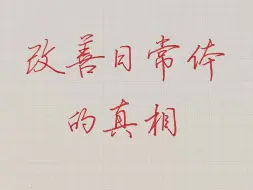 改善日常体
的真相